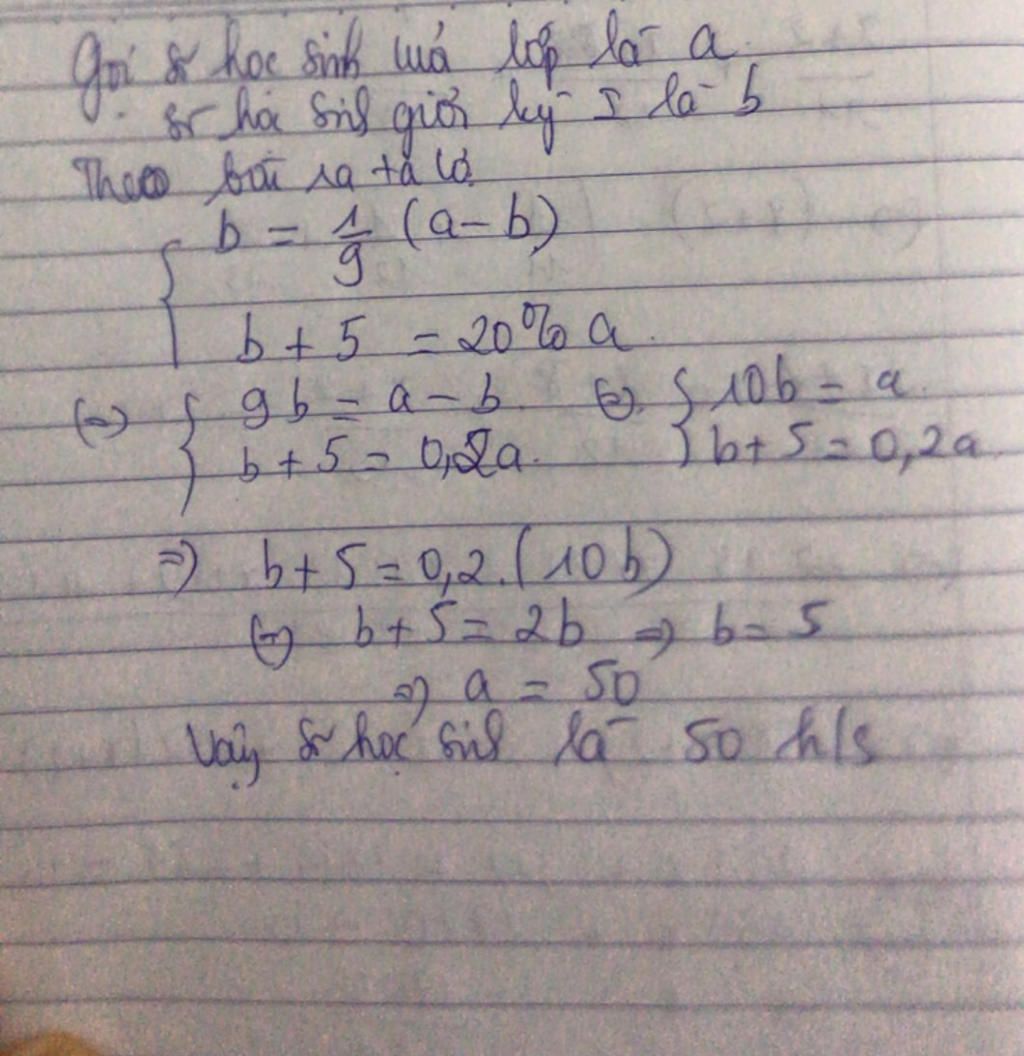 Gọi số học sinh của lớp là a
số học sinh giỏi kỳ I là b
Theo bài ra ta có
b = 1/9 (a - b)
b + 5 = 20% a.
(=) { 9b = a - b (=) { 10b = a.
b + 5 = 0,2a. b + 5 = 0,2a
=) b + 5 = 0,2.(10b)
(=) b + 5 = 2b =) b = 5
=) a = 50
Vậy số học sinh là 50 h/s